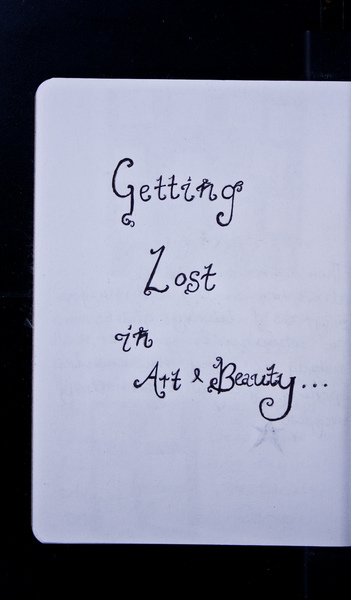 Getting
Lost
in
Art & Beauty...